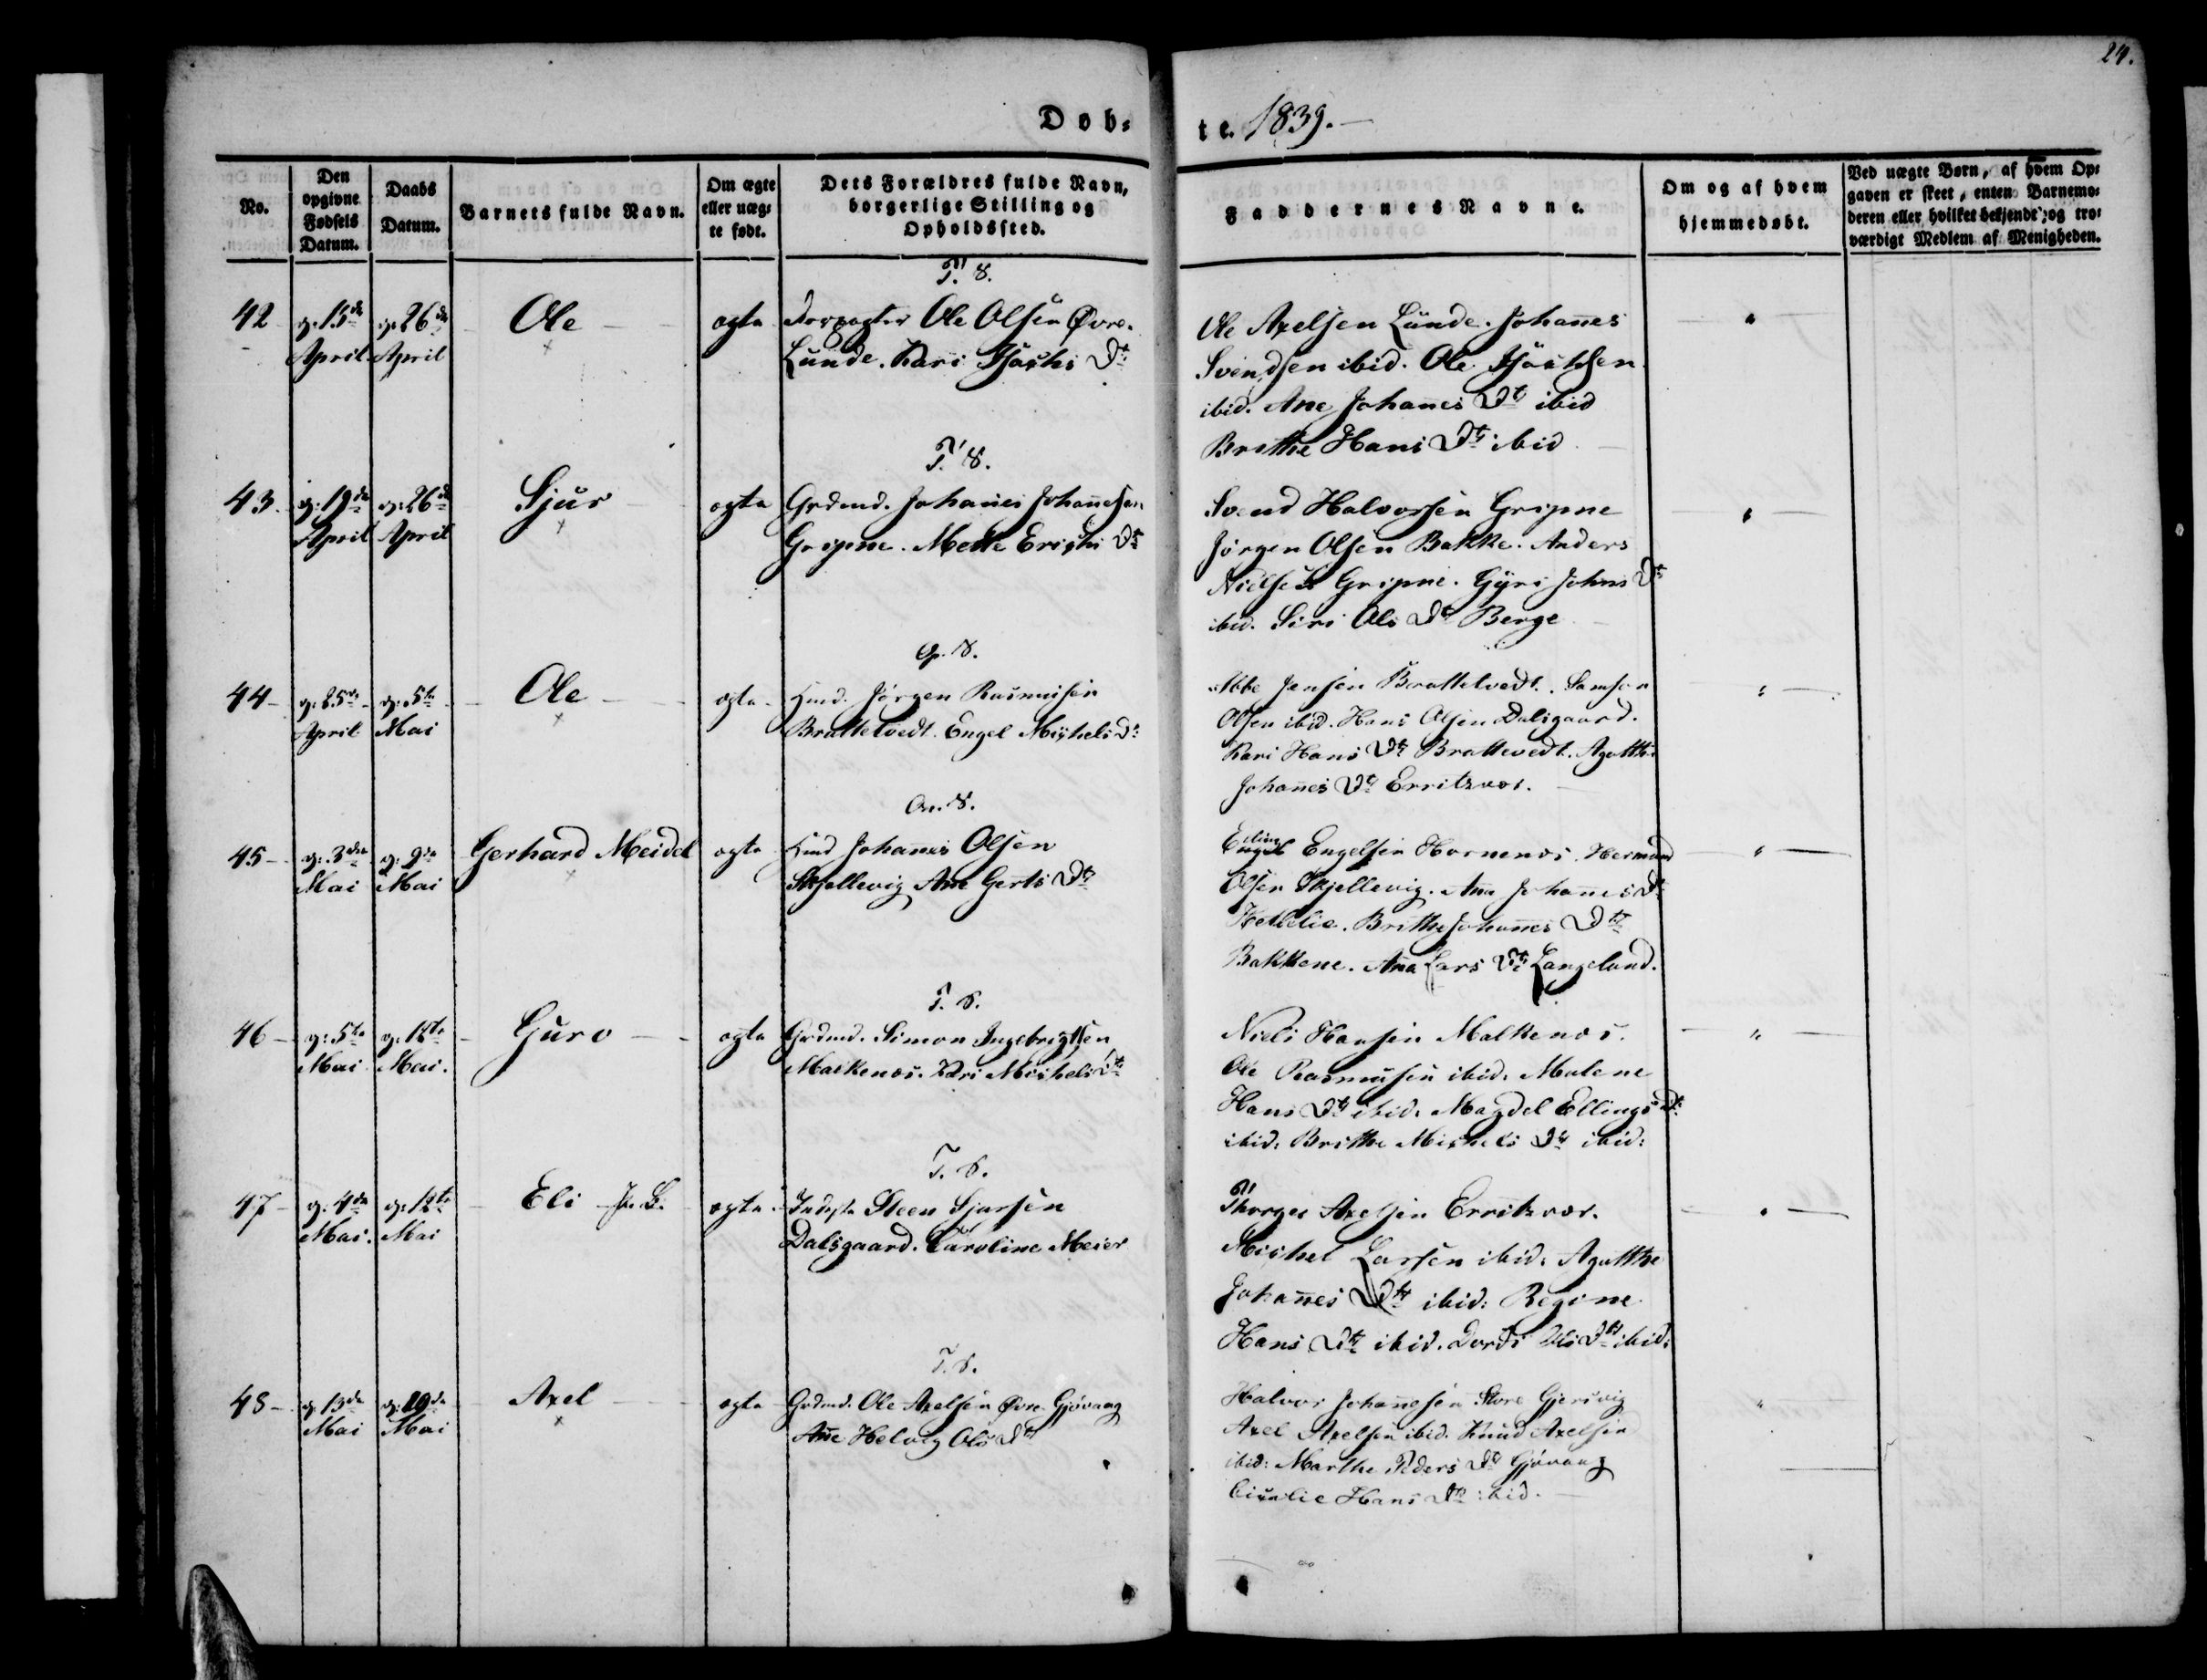 24.
Døb-
te. 1839.
No.
Den opgivne Fødsels Datum.
Daabs Datum.
Barnets fulde Navn.
Om ægte eller uægte født.
Dets Forældres fulde Navn, borgerlige Stilling og Opholdssted.
Faddernes Navne.
Om og af hvem hjemmedøbt.
Ved uægte Børn, af hvem Op-
gaven er skeet, enten Barnemo-
deren eller hvilket bekjendt, og tro-
værdigt Medlem af Menigheden.
T. S.
42 d: 15de April d: 26de April Ole ægte Ole Olsen Øvre-
Lunde. Kari Dtr
Ole Axelsen Lunde. Johannes
Svendsen ibid. Ole
ibid. Ane Johannes Dtr ibid
Brithe Hans Dtr ibid
T. S.
43. d: 19de April d: 26de April Sjur ægte Grdmd. Johannes Johannesen
Gripne. Mette Erichs Dtr
Svend Halvorsen Gripne
Jørgen Olsen Bakke. Anders
Nielsen Gripne. Gyri Johns Dtr
ibid. Siri Ols Dtr Berge
S.
44 d: 25de April d: 5te Mai Ole ægte Hmd. Jørgen Rasmusen
Brattetvedt. Engel Michels Dtr
Abbe Jensen Brattetvedt. Samson
Olsen ibid. Hans Olsen Dalsgaard.
Kari Hans Dtr Brattevedt. Agatthe
Johannes Dtr Erritzvær.
S.
45 d: 3die Mai d: 9de Mai Gerhard Meidel ægte Hmd Johannes Olsen
Skjellevig Ane Gerts Dtr
Elling Engelsen Hornenæs. Hermund
Olsen Skjellevig. Ana Johannes Dtr
Brithe Johannes Dtr
Bakkene. Ana Lars Dtr Langeland.
T. S.
46 d: 5te Mai d: 12te Mai. Guro ægte Grdmd. Simon Ingebrigtsen
Malkenæs. Kari Michels Dtr
Niels Hansen Malkenæs.
Ole Rasmusen ibid. Malene
Hans Dtr ibid. Magdel Ellings Dtr
ibid. Brithe Michels Dtr ibid:
T. S.
47 d: 4de Mai. d: 12te Mai Eli ægte Steen Sjursen
Dalsgaard. Caroline Meier
Thorger Axelsen Erritzvær.
Michel Larsen ibid. Agatthe
Johannes Dtr ibid: Regine
Hans Dtr ibid. Dorte Ols Dtr ibid:
T. S.
48 d: 13de Mai d: 20de Mai Axel ægte Grdmd. Ole Axelsen Øvre Gjøvaag
Ane Helvig Ols Dtr
Halvor Johannesen Store Gjersvig
Axel Axelsen ibid. Knud Axelsen
ibid: Marthe Peders Dtr Gjøvaag
Hans Dtr ibid.